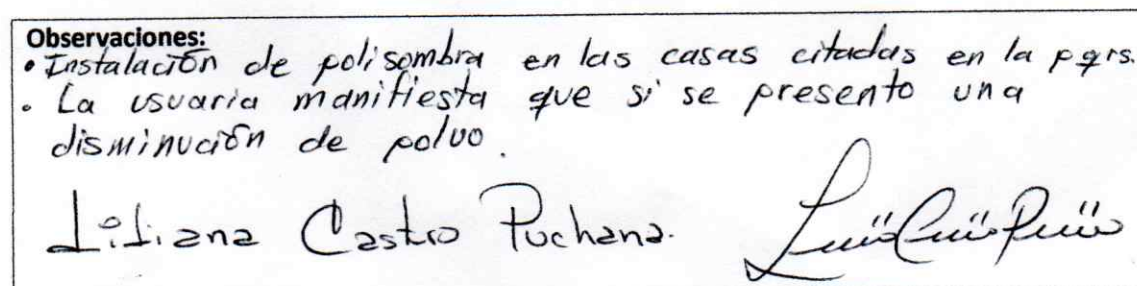 Observaciones:
• Instalación de polisombra en las casas citadas en la pqrs.
• La usuaria manifiesta que si se presento una
disminución de polvo.
Liliana Castro Puchana.